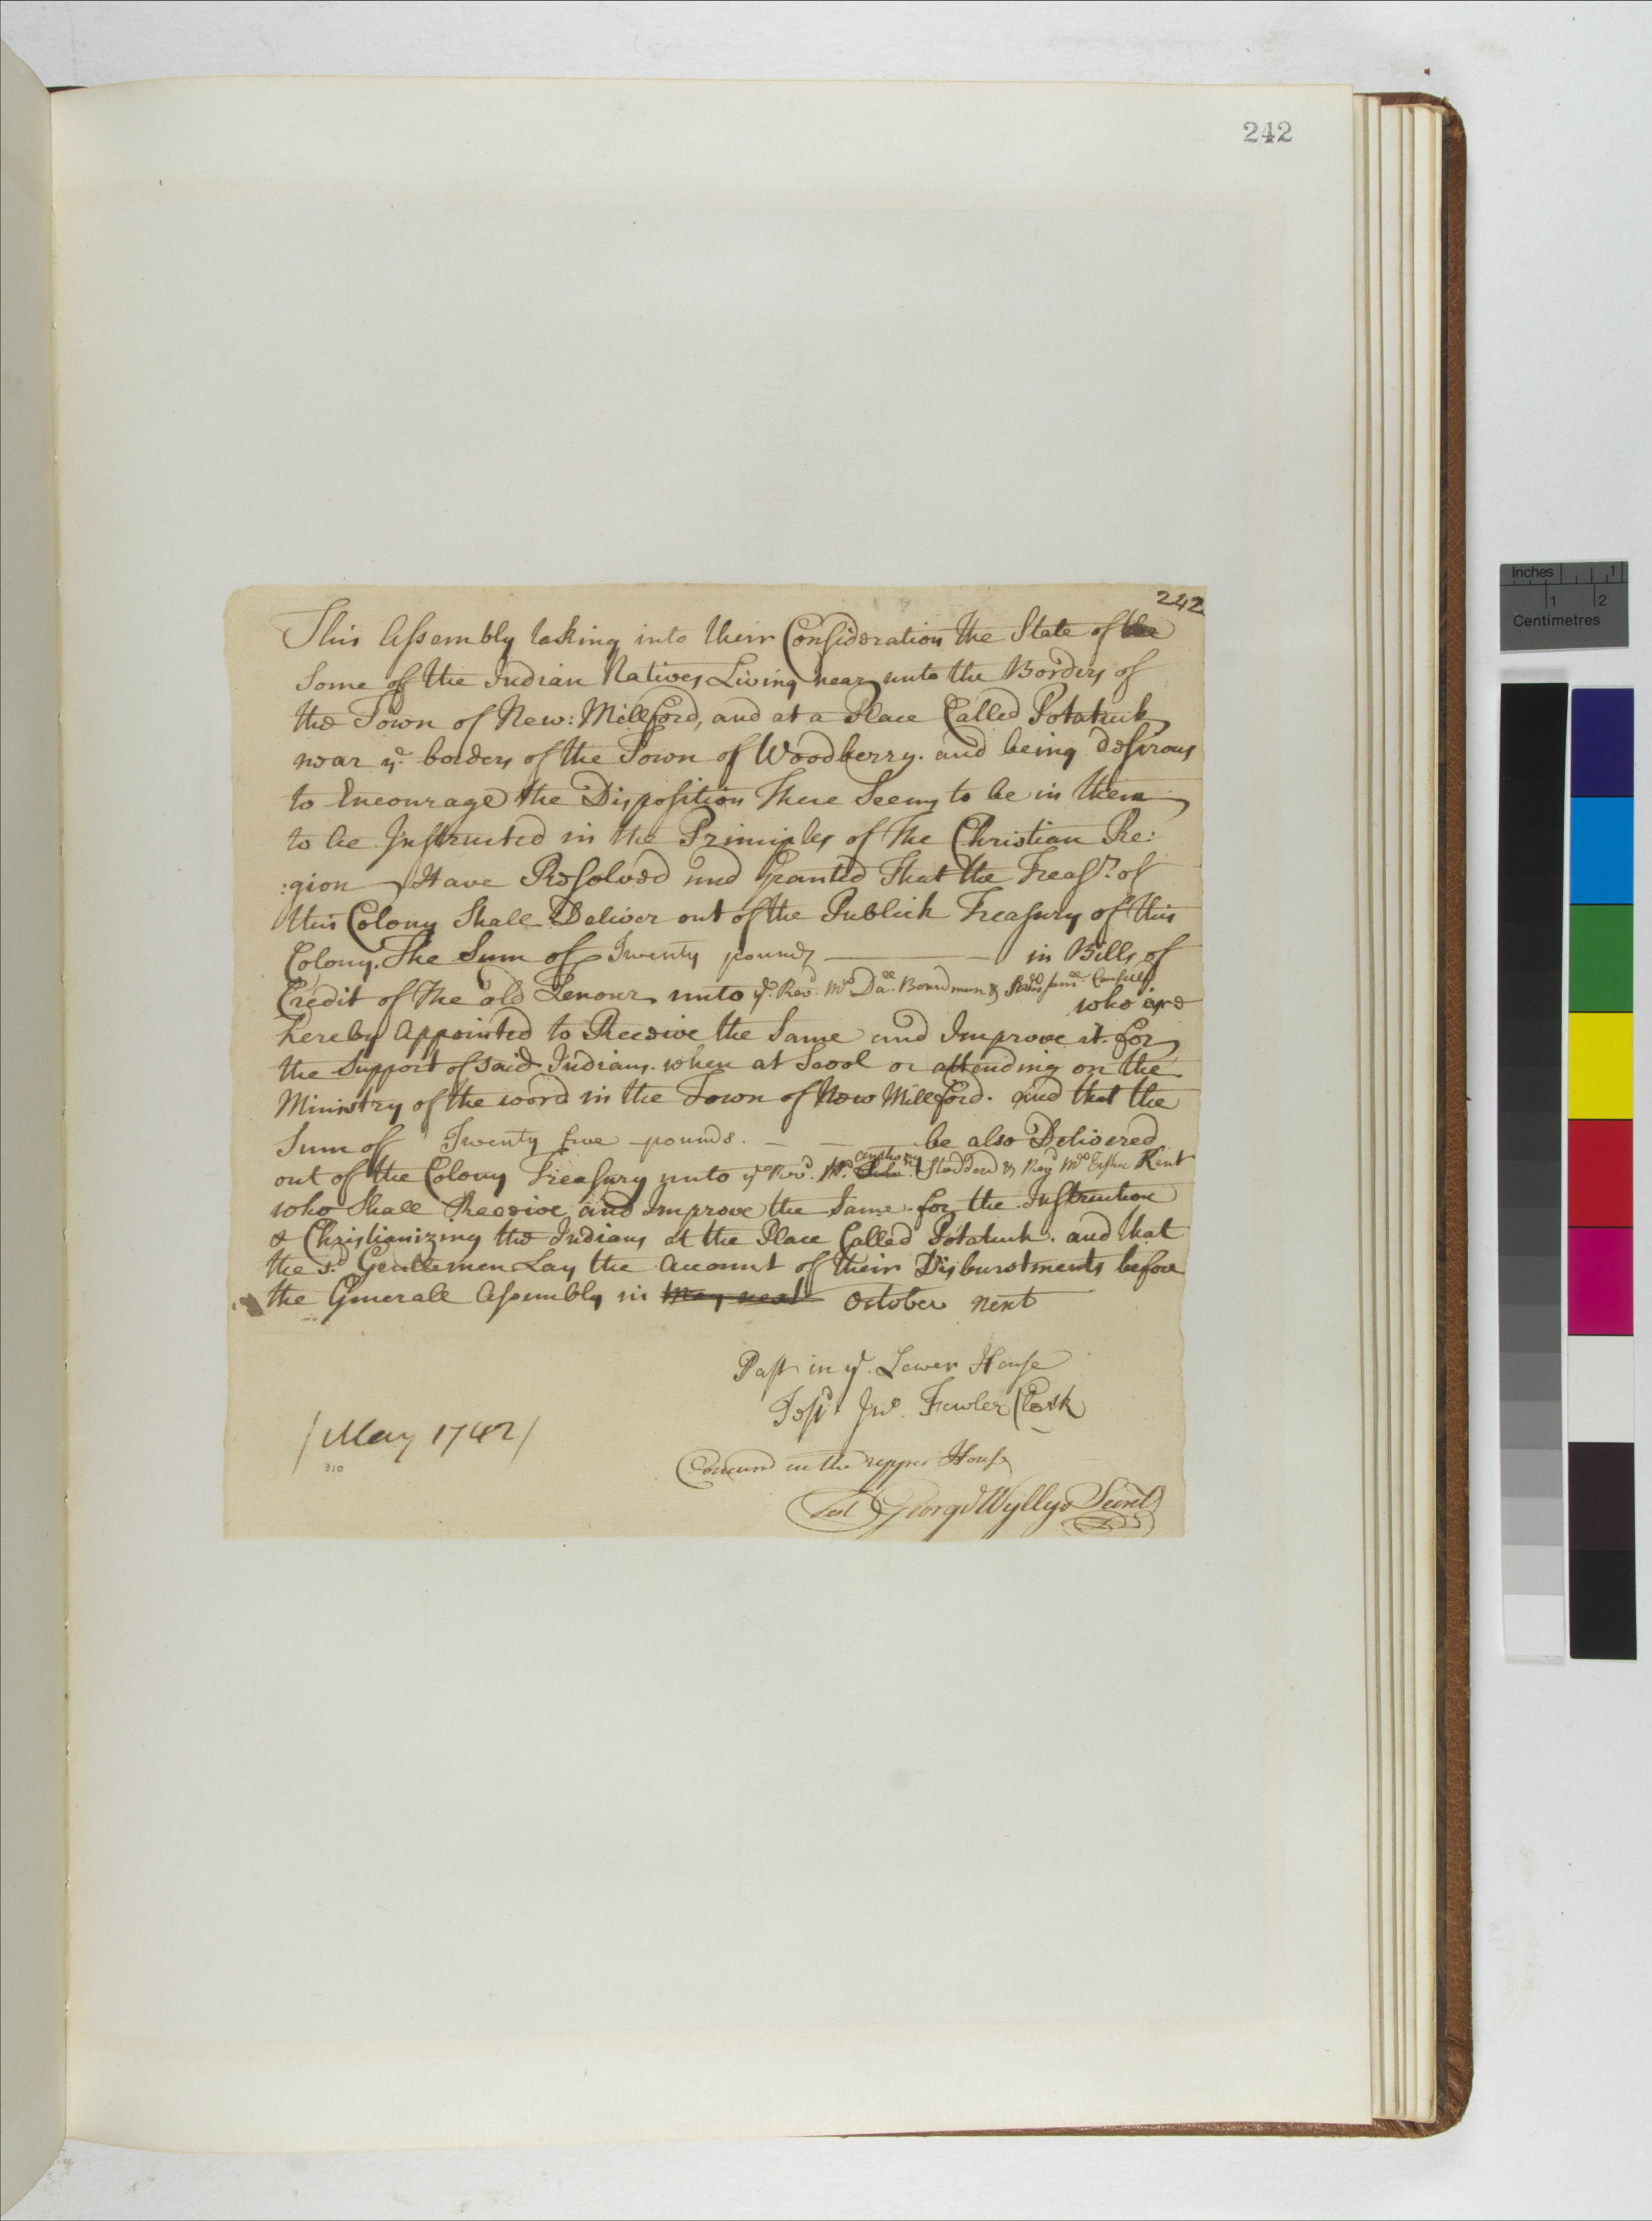 242
242
This Assembly taking into their Consideration the State of the
Some of the Indian Natives Living near unto the Borders of
the Town of New: Millford, and at a Place Called Potatuck
near yᵉ borders of the Town of Woodberry. and being desirous
to Encourage the Disposition There Seems to be in them
to be Instructed in the Principles of The Christian Re:
:gion Have Resolved and Granted That the Treasʳ. of
this Colony Shall Deliver out of the Publick Treasury of this
Colony. The Sum of Twenty pounds in Bills of
Credit of The old Tenour unto yᵉ Revᵈ. Mʳ Daˡˡ. Boardman &
who are
hereby Appointed to Receive the Same and Improve it for
the Support of said Indians. when at Scool or attending on the
Ministry of the word in the Town of New Millford. and that the
Sum of Twenty five pounds. be also Delivered
anthony
out of the Colony Treasury unto yᵉ Revᵈ. Mʳ. Stoddard & Revᵈ Mʳ Elisha Kent
who Shall Receive and Improve the Same for the Instruction
& Christianizing the Indians at the Place Called Potatuck. and that
the sᵈ. Gentlemen Lay the Account of their Disburstments before
the Generall Assembly in May next October next
Past in yᵉ. Lower House
Test Jnᵒ. Fowler Clerk
/May 1742/
310
Concurd in the upper House
Test George Wyllys Secretʸ
Inches 1
1 2
Centimetres